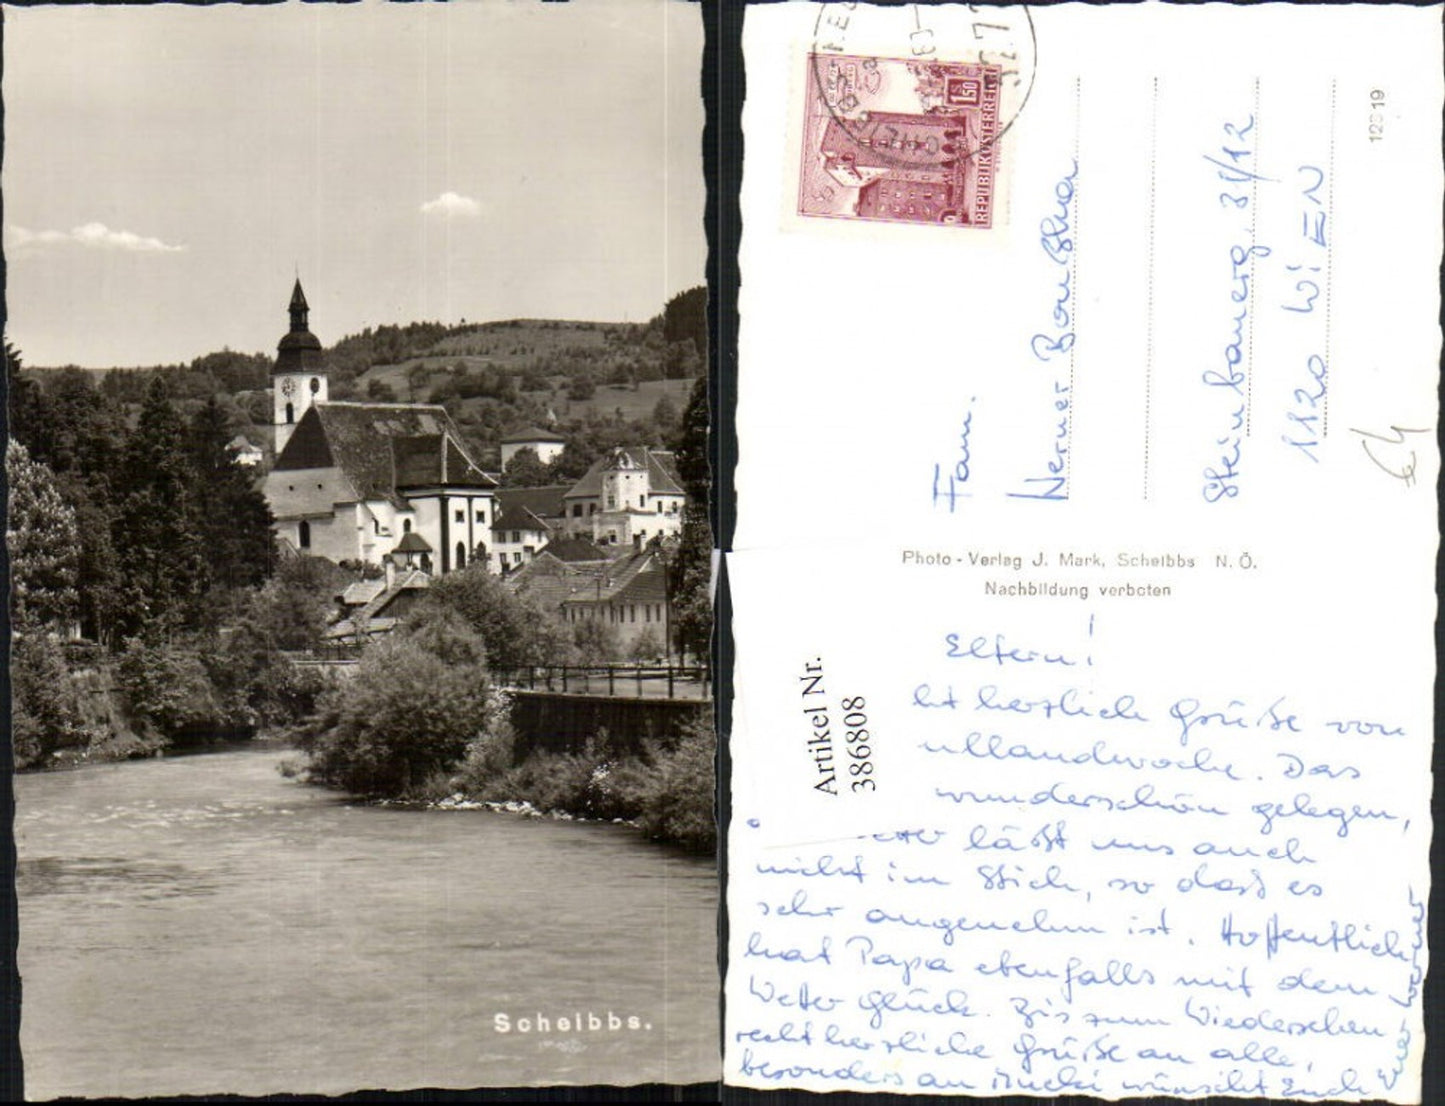 Scheibbs.
1.50
REPUBLIK ÖSTERREICH
3277
12819
Fam.
Werner
Steinbauerg. 31/12
1120 WIEN
Photo - Verlag J. Mark, Scheibbs N. Ö.
Nachbildung verboten
Artikel Nr.
386808
Eltern!
herzliche Grüße von
Das
wunderschön gelegen,
läßt uns auch
nicht im Stich, so daß es
sehr angenehm ist. Hoffentlich
hat Papa ebenfalls mit dem
Wetter Glück. Bis zum Wiedersehen
recht herzliche Grüße an alle,
besonders an wünscht Euch
Euer Werner